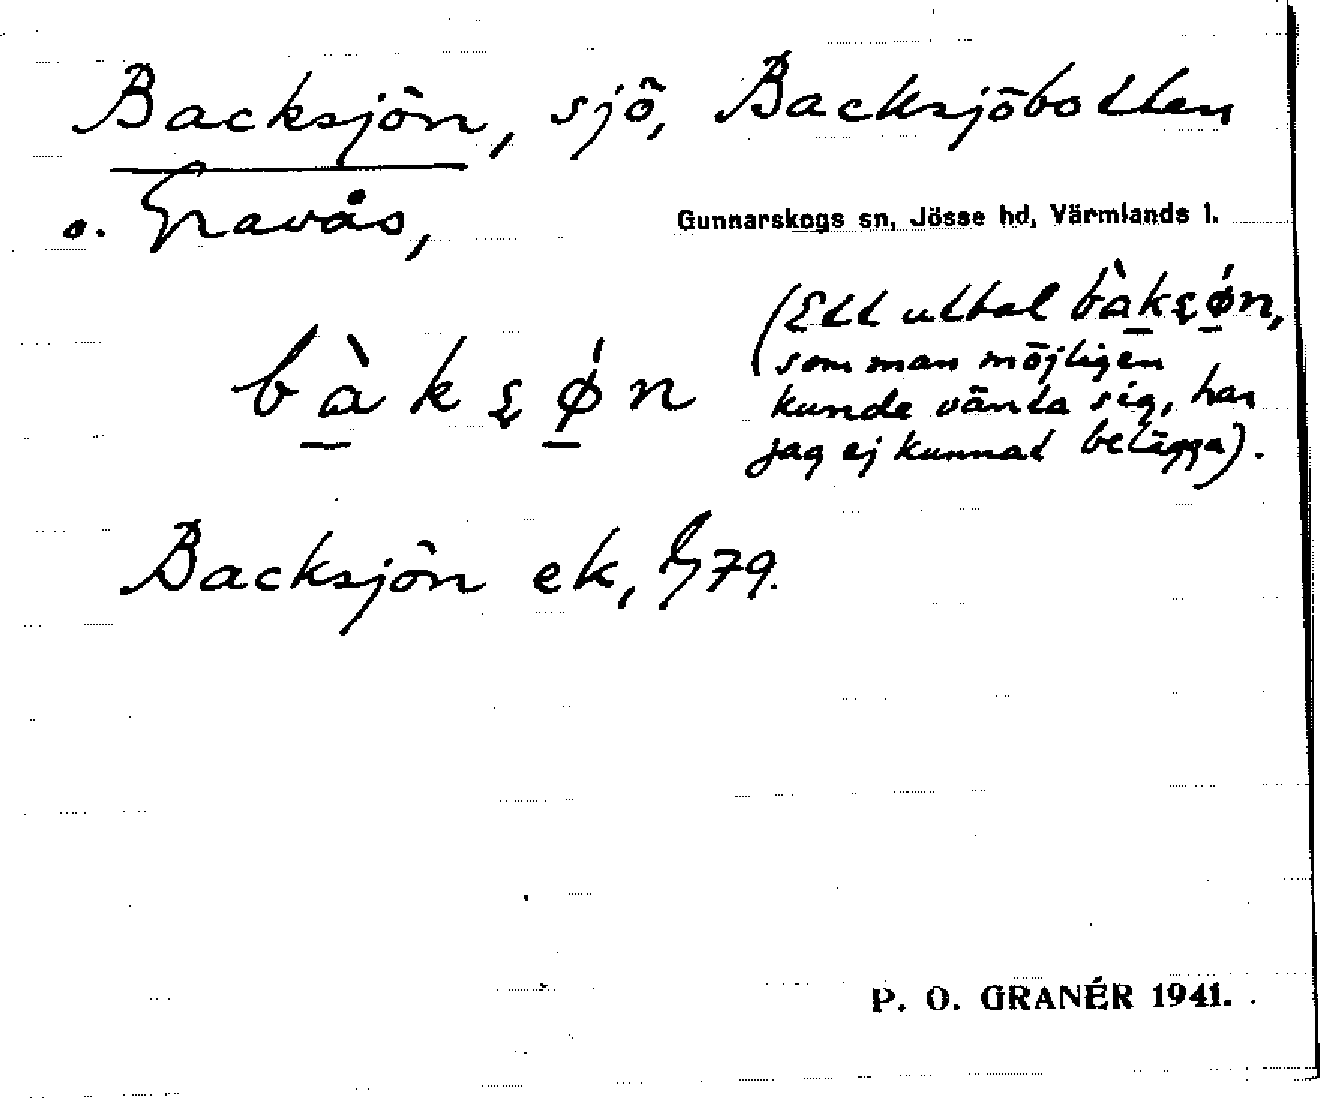 Backsjön, sjö, Backsjöbotten
o. Gravås,
Gunnarskogs sn, Jösse hd, Värmlands l.
bàkʂǿn
(Ett uttal bàkʂǿn,
som man möjligen
kunde vänta sig, har
jag ej kunnat belägga).
Backsjön ek, 79.
P. O. GRANÉR 1941.